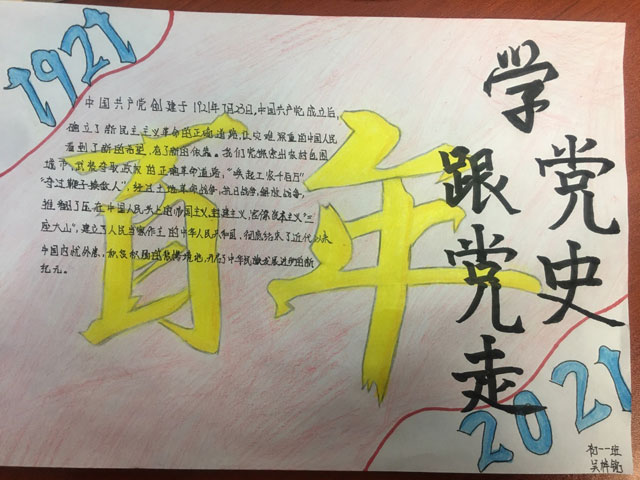 1921
中国共产党创建于1921年7月23日,中国共产党成立后,
确立了新民主主义革命的正确道路,让灾难深重的中国人民
看到了新的希望,有了新的依靠。我们党探索出农村包围
城市、武装夺取政权的正确革命道路,“唤起工农千百万”
“夺过鞭子揍敌人”,经过土地革命战争,抗日战争,解放战争,
推翻了压在中国人民头上的帝国主义,封建主义,官僚资本主义“三
座大山”,建立了人民当家作主的中华人民共和国,彻底结束了近代以来
中国内忧外患,积贫积弱的悲惨境地,开启了中华民族发展进步的新
纪元。
百年
学党史
跟党走
2021
初一一班